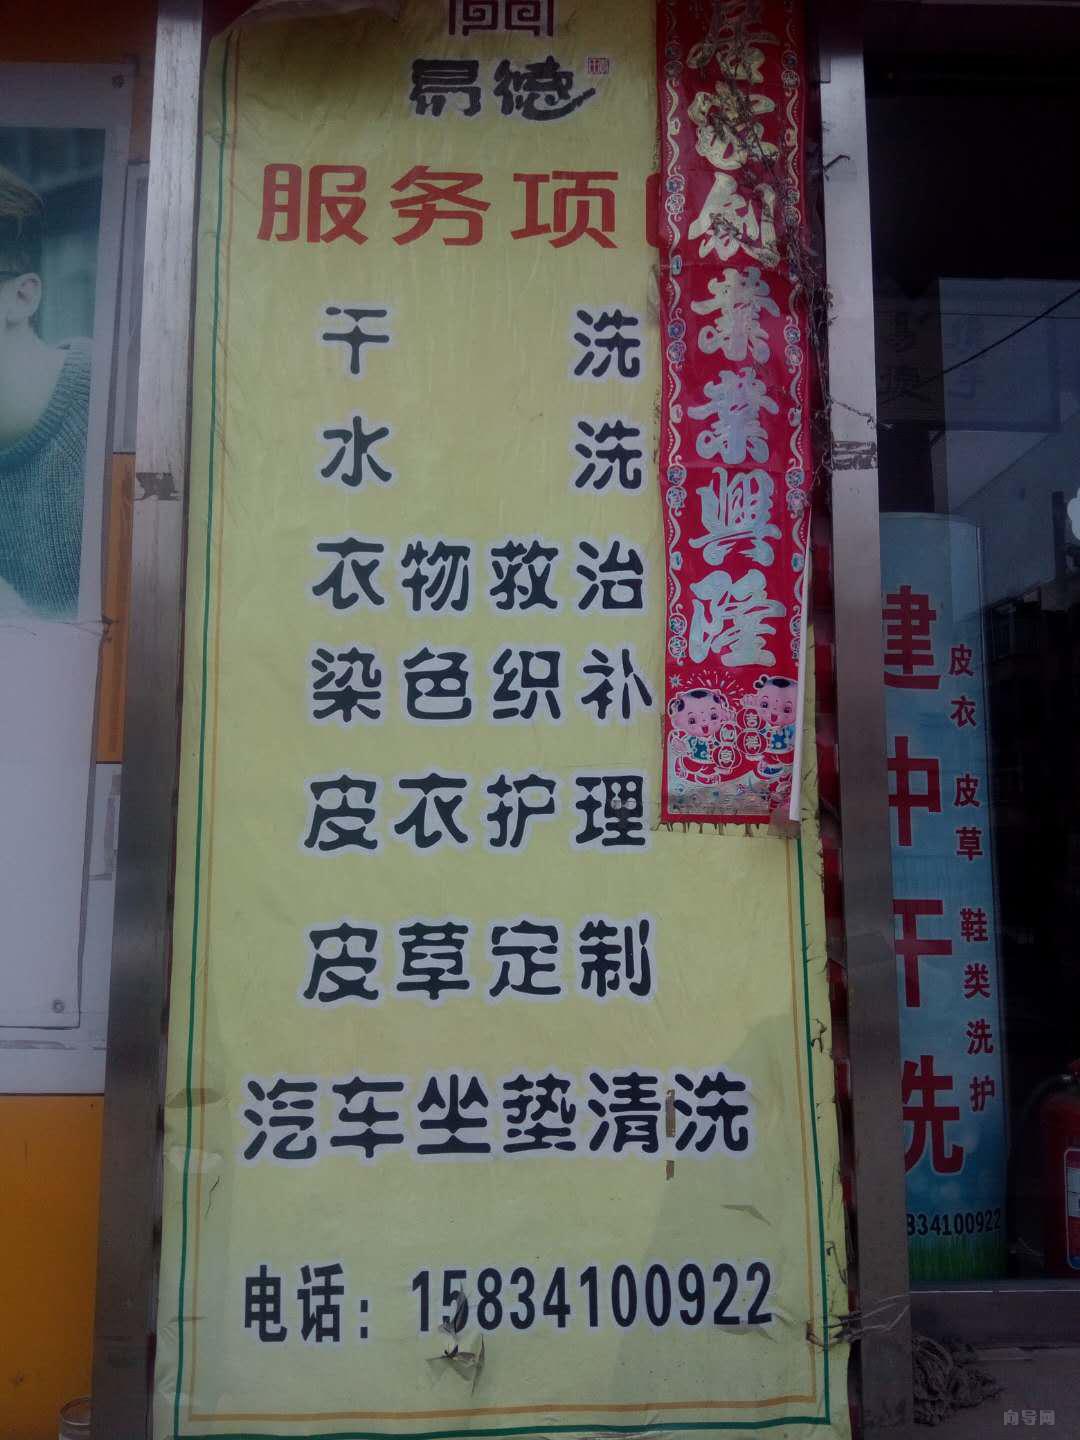 易德
服务项
干洗
水洗
衣物救治
染色织补
皮衣护理
皮草定制
汽车坐垫清洗
电话：15834100922
居家创業業興隆
建中干洗
皮衣 皮草 鞋类洗护
834100922
向导网